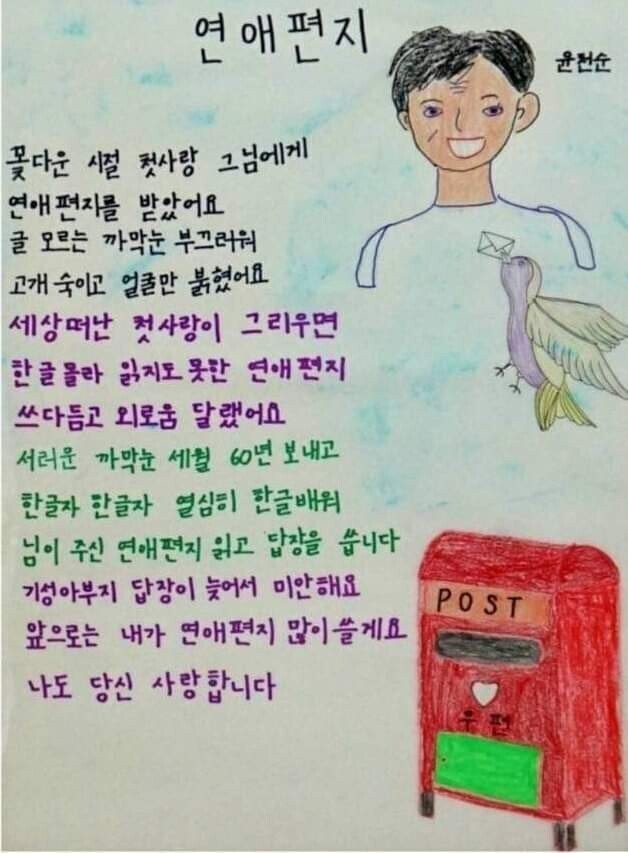 연애편지
윤전순
꽃다운 시절 첫사랑 그님에게
연애편지를 받았어요
글 모르는 까막눈 부끄러워
고개 숙이고 얼굴만 붉혔어요
세상떠난 첫사랑이 그리우면
한글몰라 읽지도 못한 연애편지
쓰다듬고 외로움 달랬어요
서러운 까막눈 세월 60년 보내고
한글자 한글자 열심히 한글배워
님이 주신 연애편지 읽고 답장을 씁니다
기성아부지 답장이 늦어서 미안해요
앞으로는 내가 연애편지 많이쓸게요
나도 당신 사랑합니다
POST
우편